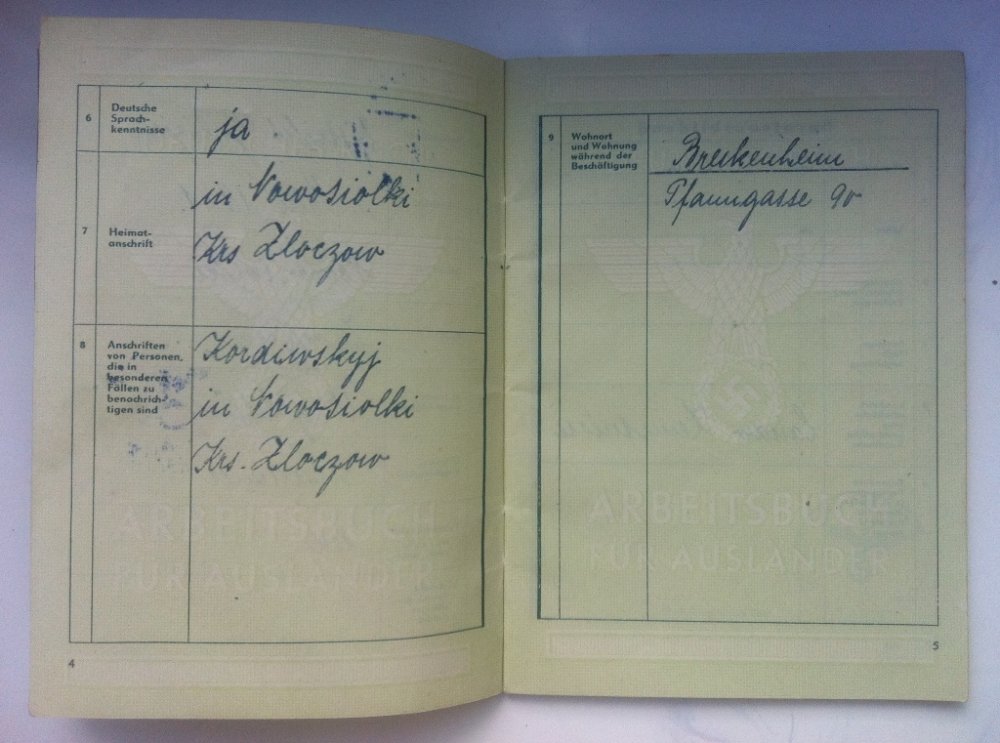 6
Deutsche
Sprach-
kenntnisse
ja
7
Heimat-
anschrift
in Nowosiolki
Krs Zloczow
8
Anschriften
von Personen,
die in
besonderen
Fällen zu
benachrich-
tigen sind
Kordiwskyj
in Nowosiolki
Krs. Zloczow
ARBEITSBUCH
FÜR AUSLÄNDER
4
9
Wohnort
und Wohnung
während der
Beschäftigung
Breckenheim
Pfanngasse 90
ARBEITSBUCH
FÜR AUSLÄNDER
5